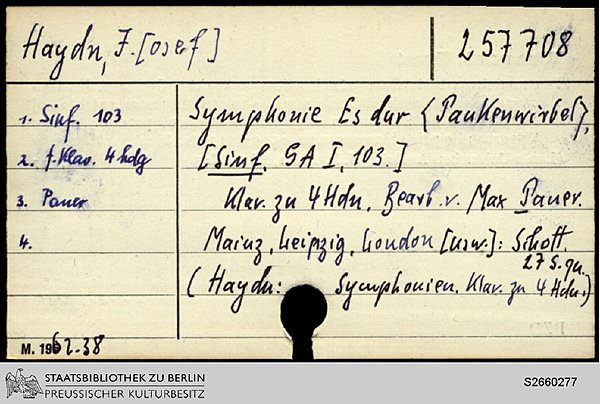 Haydn, J.[osef]
257708
1. Sinf. 103
2. f. Klav. 4hdg
3. Pauer
4.
Symphonie Es dur (Paukenwirbel),
[Sinf. GA I, 103.]
Klav. zu 4 Hdn. Bearb. v. Max Pauer.
Mainz, Leipzig, London [usw.]: Schott.
27 S. qu.
(Haydn: Symphonien. Klav. zu 4 Hdn.)
M. 1962.38
STAATSBIBLIOTHEK ZU BERLIN
PREUSSISCHER KULTURBESITZ
S2660277